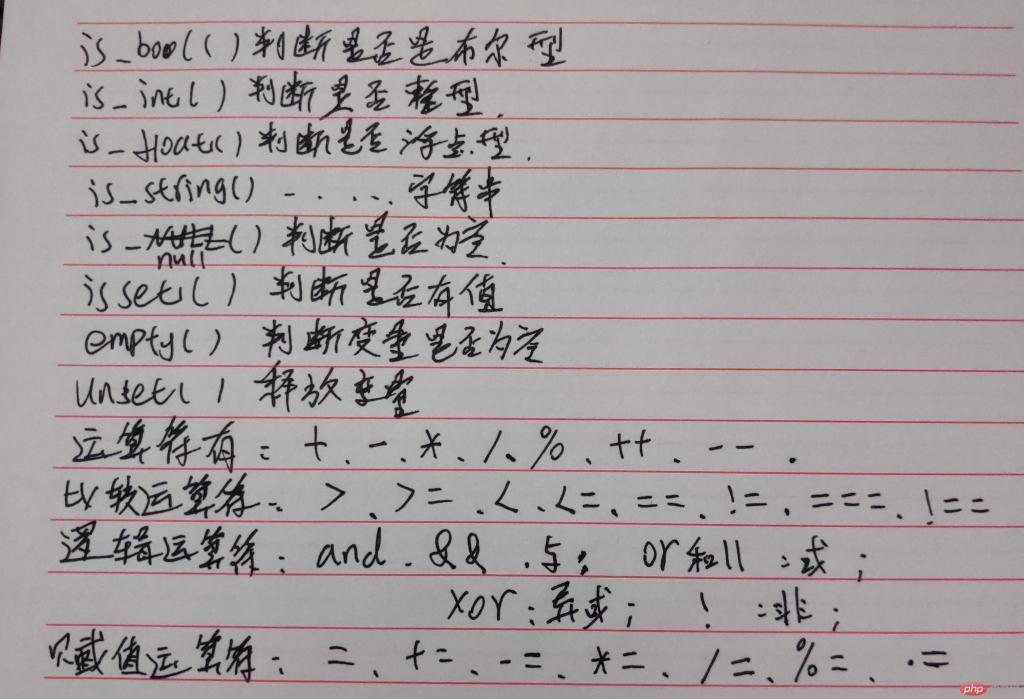 is_bool()判断是否是布尔型
is_int()判断是否整型.
is_float()判断是否浮点型.
is_string() - . . . . 字符串
is_null()判断是否为空.
isset()判断是否有值
empty() 判断变量是否为空
unset() 释放变量
运算符有: +、-、*、/、%、++、--.
比较运算符: >、>=、<、<=、==、!=、===、!==
逻辑运算符: and、&&、与; or和||:或;
xor:异或; ! :非;
赋值运算符: =、+=、-=、*=、/=、%=、.=
php